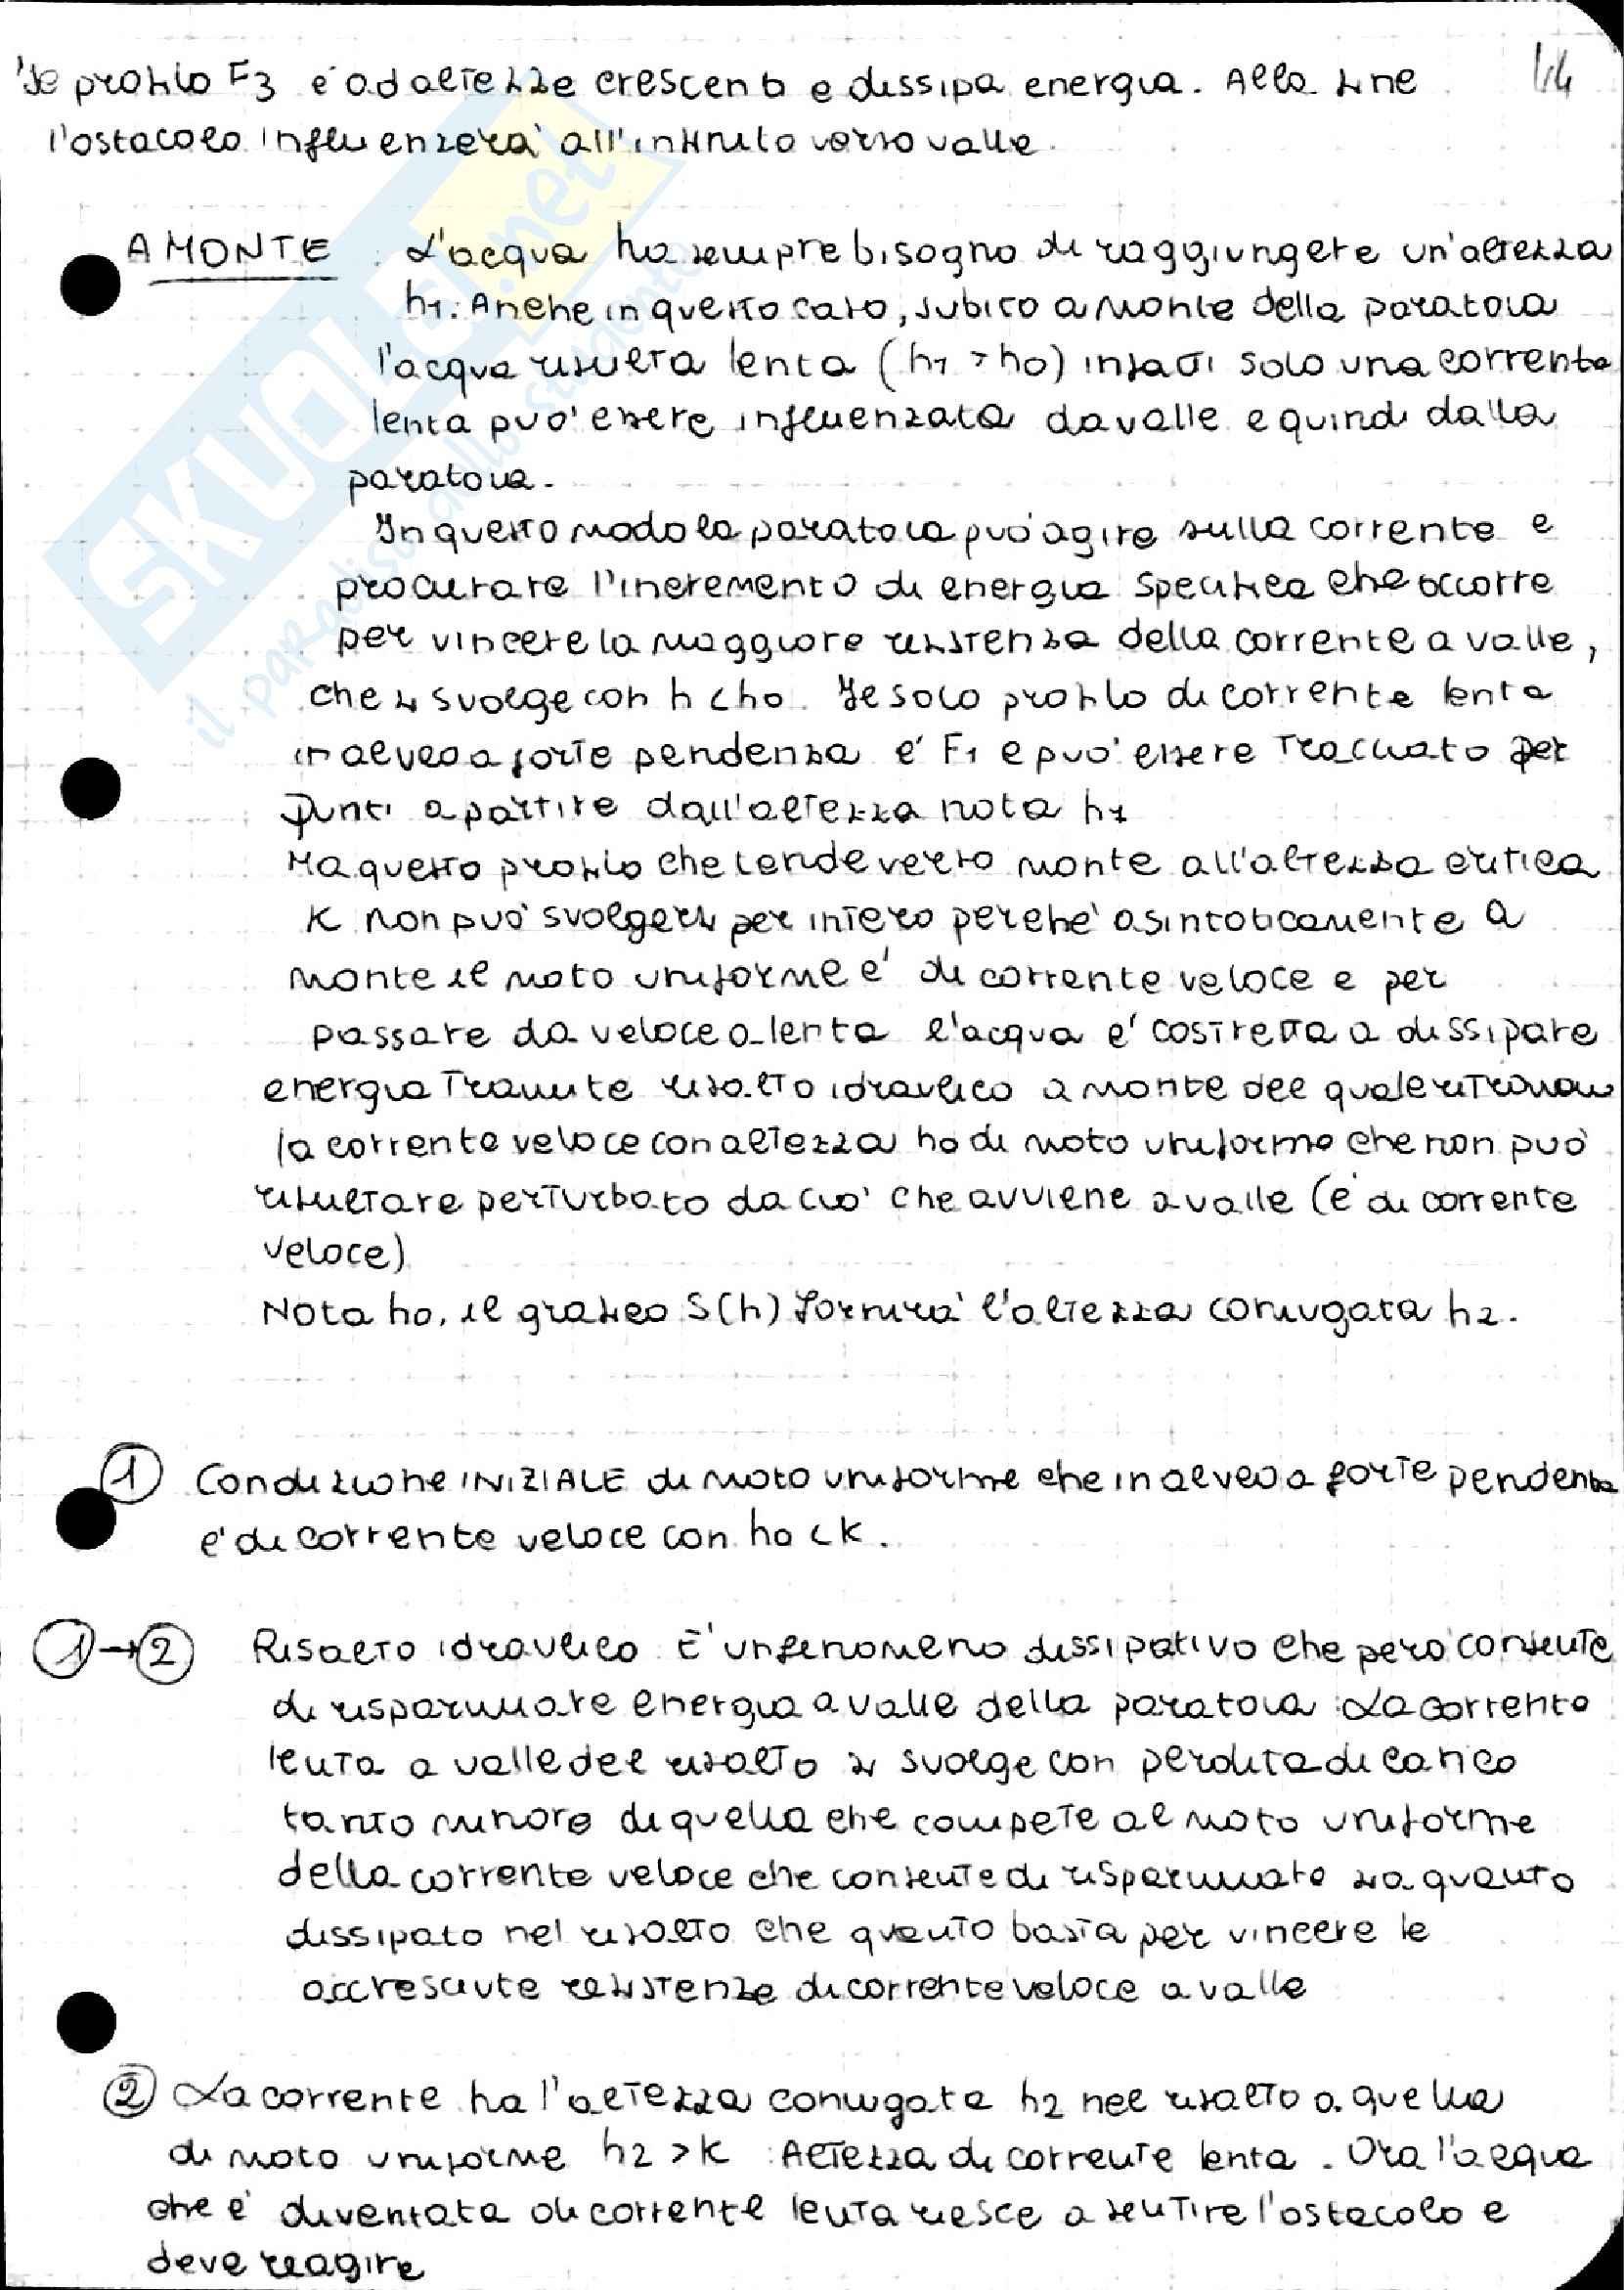 Il profilo F3 è ad altezze crescenti e dissipa energia. Alla fine 44
l'ostacolo influenzerà all'infinito verso valle.
A MONTE : L'acqua ha sempre bisogno di raggiungere un'altezza
h1. Anche in questo caso, subito a monte della paratoia
l'acqua risulta lenta (h1 > h0) infatti solo una corrente
lenta può essere influenzata da valle e quindi dalla
paratoia.
In questo modo la paratoia può agire sulla corrente e
procurare l'incremento di energia specifica che occorre
per vincere la maggiore resistenza della corrente a valle,
che si svolge con h < h0. Il solo profilo di corrente lenta
in alveo a forte pendenza è F1 e può essere tracciato per
punti a partire dall'altezza nota h1
Ma questo profilo che tende verso monte all'altezza critica
K non può svolgersi per intero perchè asintoticamente a
monte il moto uniforme è di corrente veloce e per
passare da veloce a lenta l'acqua è costretta a dissipare
energia tramite risalto idraulico a monte del quale ritroviamo
la corrente veloce con altezza h0 di moto uniforme che non può
risultare perturbato da ciò che avviene a valle (è di corrente
veloce)
Nota h0, il grafico S(h) fornirà l'altezza coniugata h2.
1 Condizione INIZIALE di moto uniforme che in alveo a forte pendenza
è di corrente veloce con h0 < K.
1→2 Risalto idraulico. E' un fenomeno dissipativo che però consente
di risparmiare energia a valle della paratoia. La corrente
lenta a valle del risalto si svolge con perdita di carico
tanto minore di quella che compete al moto uniforme
della corrente veloce che consente di risparmiare sia quanto
dissipato nel risalto che quanto basta per vincere le
accresciute resistenze di corrente veloce a valle
2 La corrente ha l'altezza coniugata h2 nel risalto a quella
di moto uniforme h2 > K : Altezza di corrente lenta. Ora l'acqua
che è diventata di corrente lenta riesce a sentire l'ostacolo e
deve reagire
SKUOLA.net
il paradiso dello studente